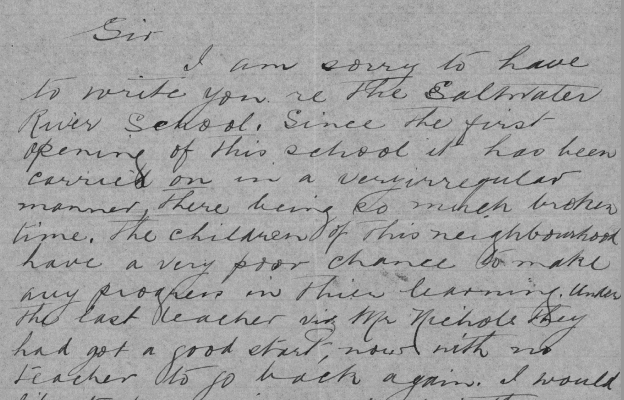 Sir
I am sorry to have
to write you re the Saltwater
River School. Since the first
opening of this school it has been
carried on in a very irregular
manner, there being so much broken
time. The children of this neighbourhood
have a very poor chance to make
any progress in thier learning. Under
the last teacher viz Mr Nichols they
had got a good start, now with no
teacher to go back again. I would